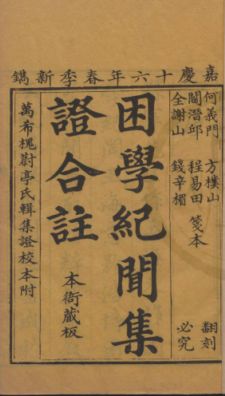 嘉慶十六年春季新鐫
何義門　方樸山　翻刻
閻潛邱　程易田　箋本
全謝山　錢辛楣　必究
困學紀聞集
證合註
本衙藏板
萬希槐蔚亭氏輯集證校本附